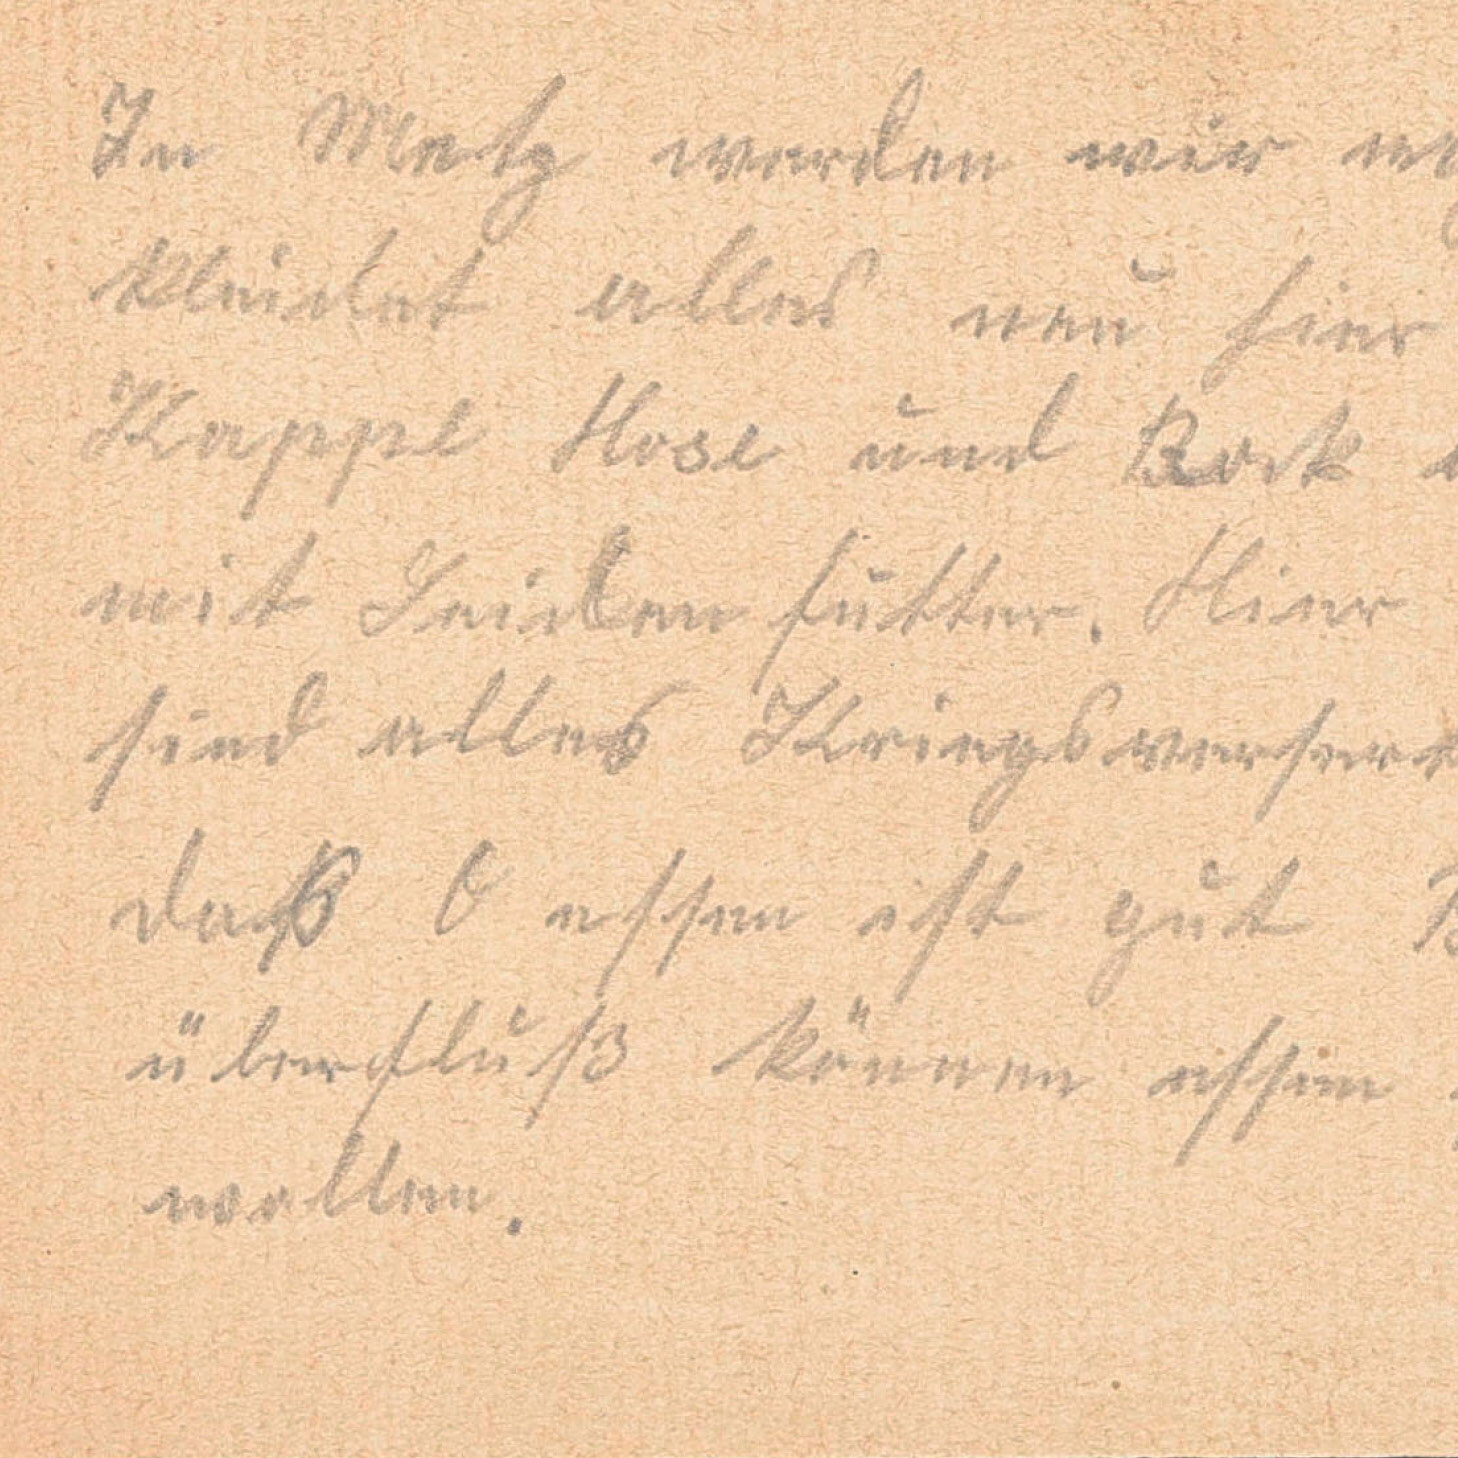 In Metz werden wir
kleidet alles neu hier
Kappe Hose und Rock
mit Seidenfutter. Hier
sind alles
daß essen ist gut
überfluß können essen
wollen.